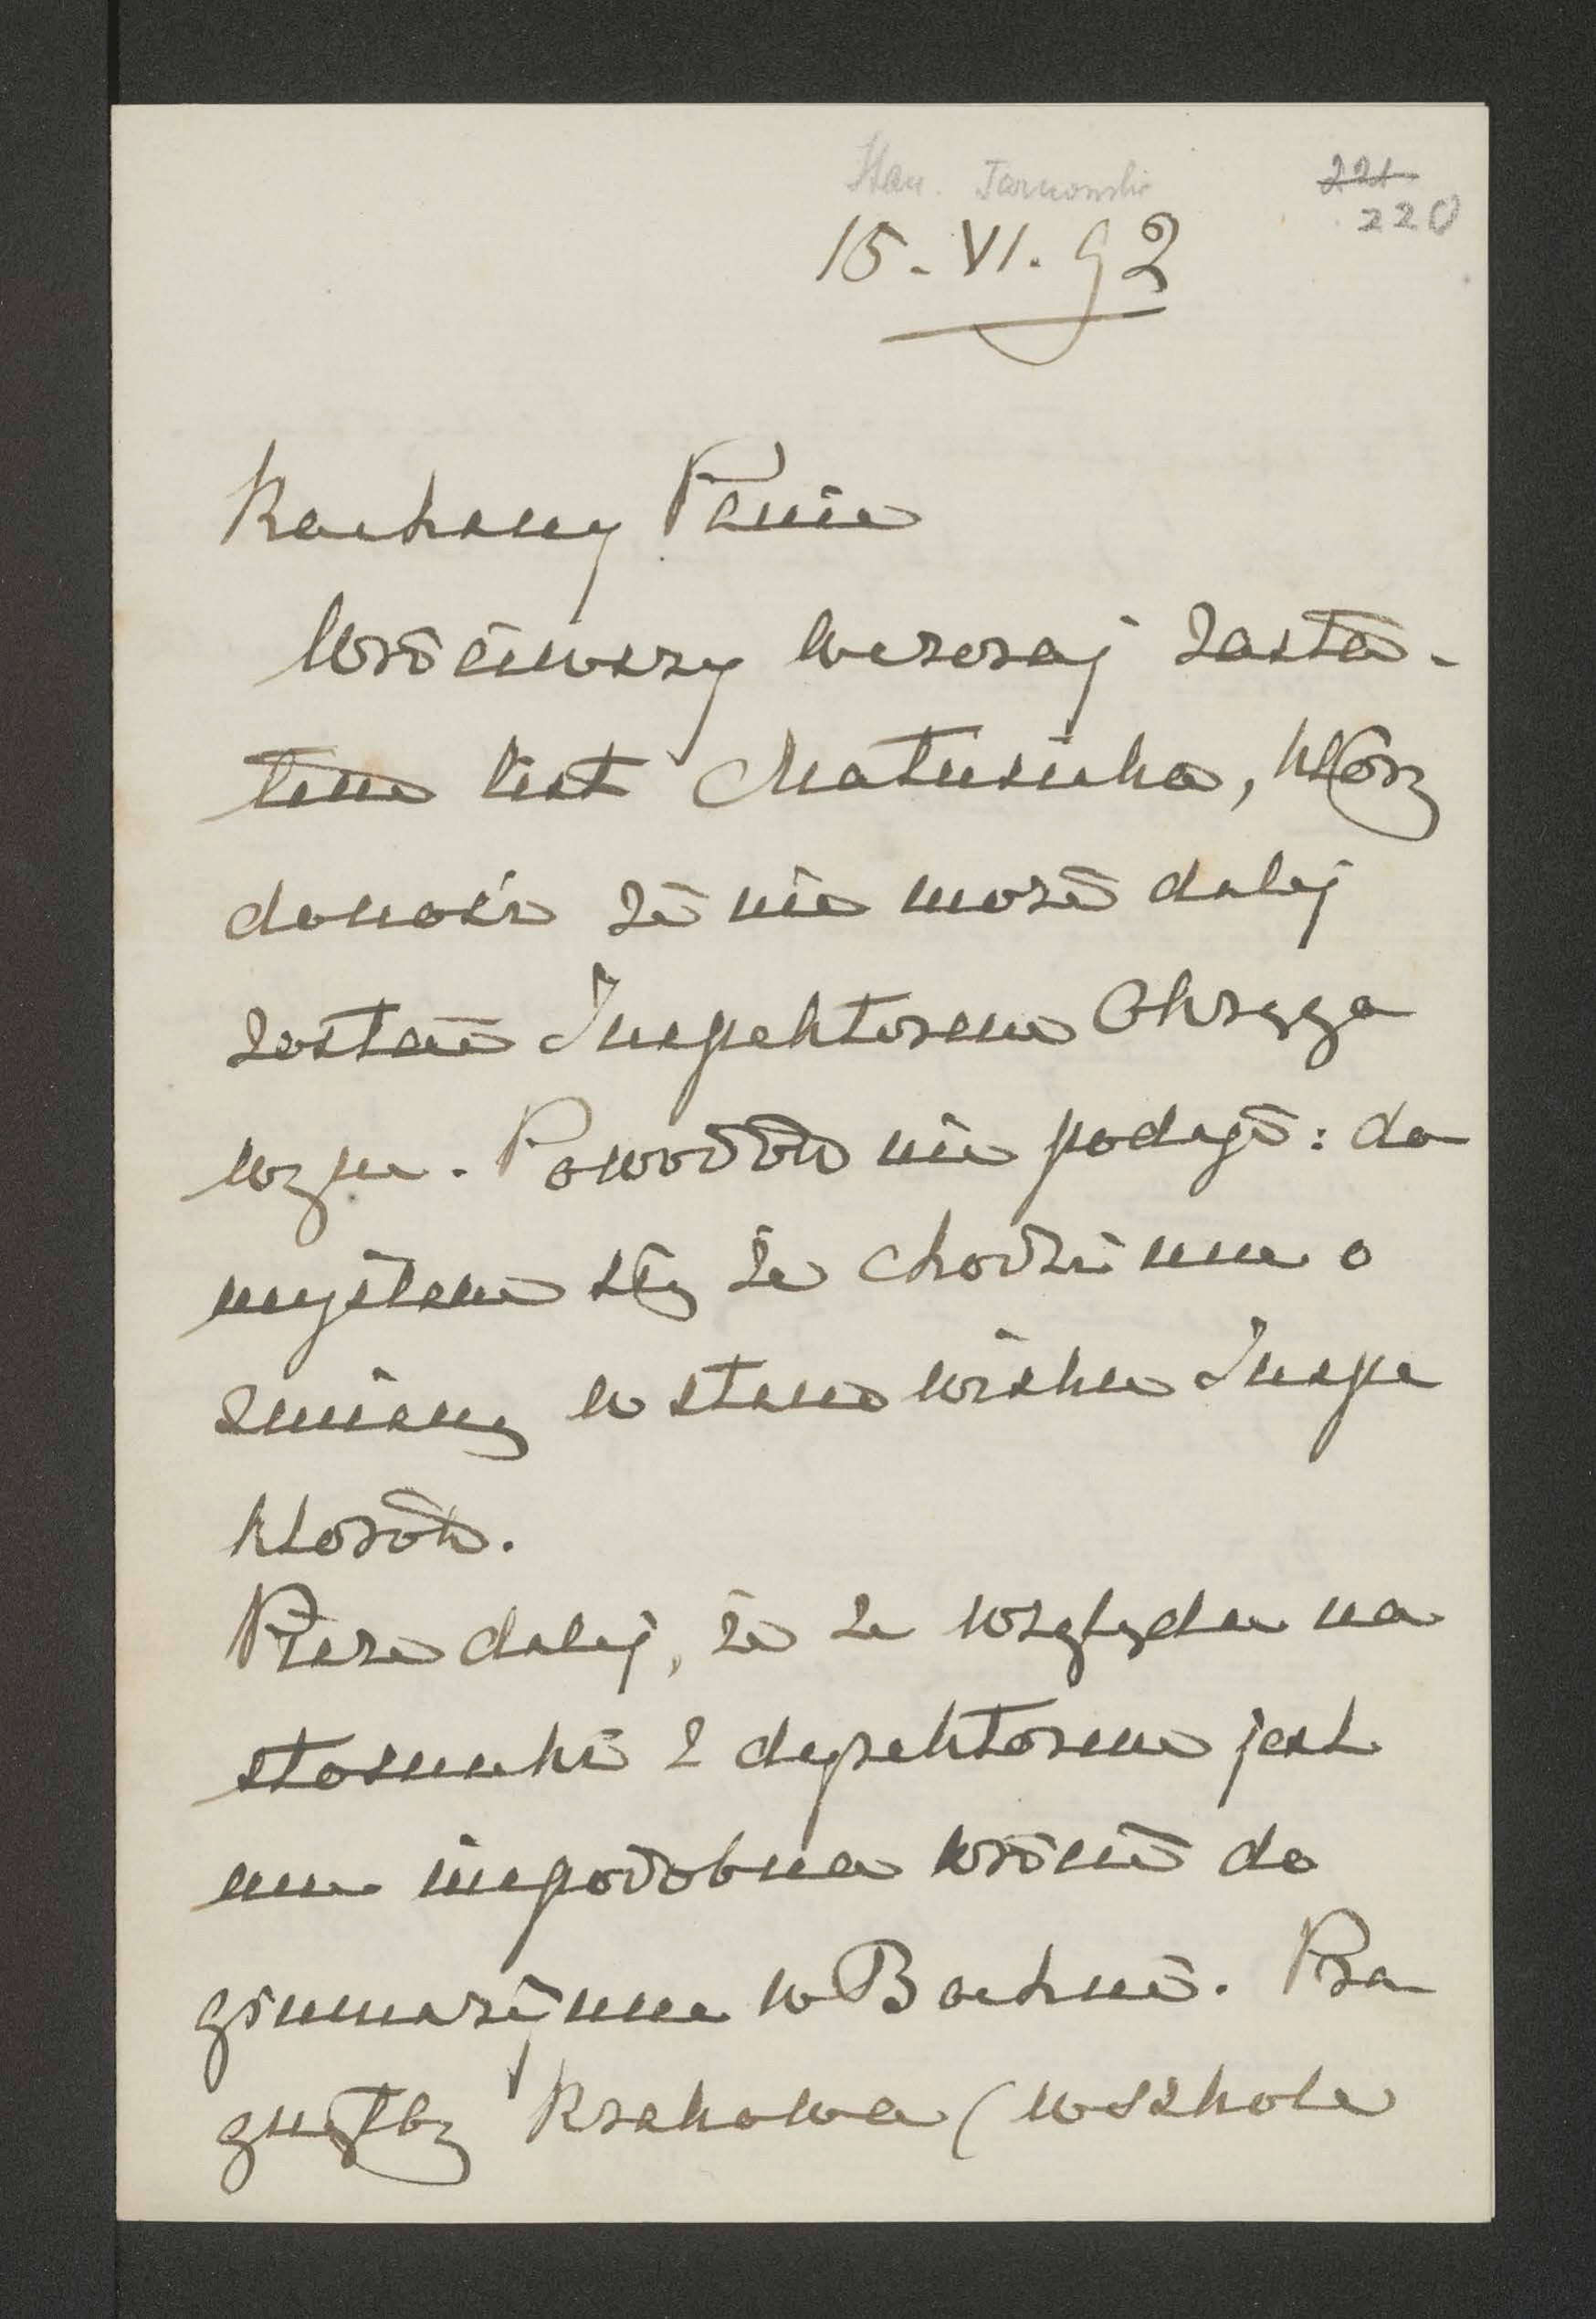 Stan. Tarnowski
221
220
15. VI. 92
Kochany Panie
Wróciwszy wczoraj zasta-
łem list Matusiaka, który
donosi że nie może dalej
zostać Inspektorem Okręgo
wym. Powodów nie podaje: do
myślam się że chodzi mu o
zmianę w stanowisku Inspe
ktorów.
Pisze dalej, że ze względu na
stosunki z dyrektorem jest
mu niepodobna wrócić do
gimnazyum w Bochni. Pra
gnąłby Krakowa (w szkole